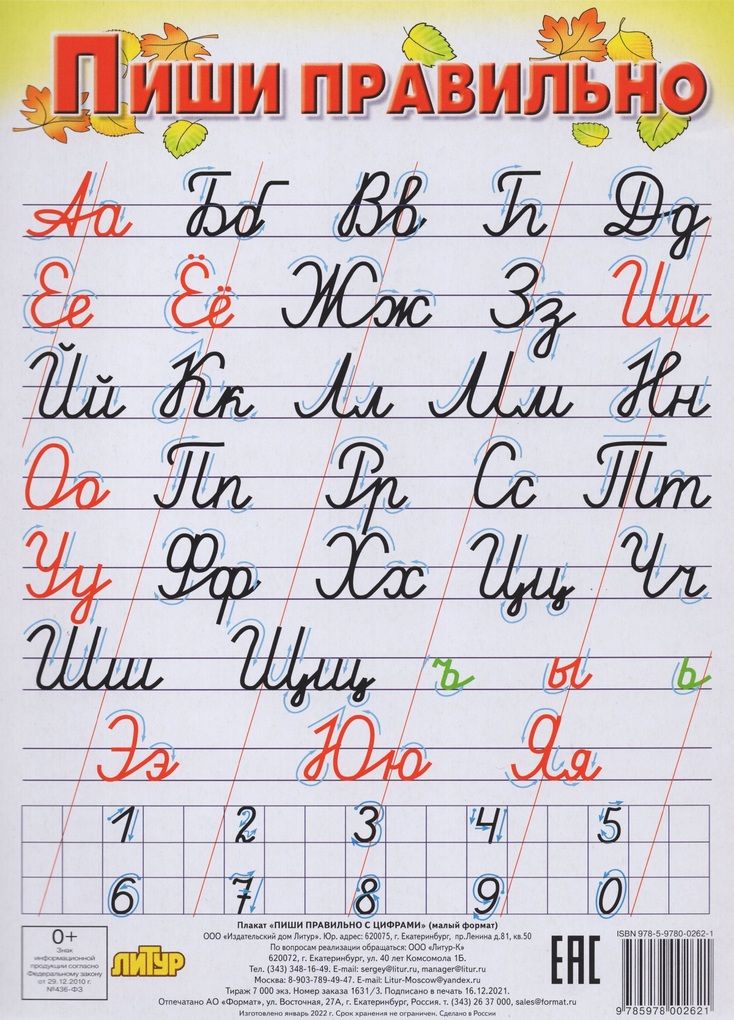 Пиши правильно
Аа Бб Вв Гг Дд
Ее Ёё Жж Зз Ии
Йй Кк Лл Мм Нн
Оо Пп Рр Сс Тт
Уу Фф Хх Цц Чч
Шш Щщ ъ ы ь
Ээ Юю Яя
1 2 3 4 5
6 7 8 9 0
0+
Знак
информационной
продукции согласно
Федеральному закону
от 29.12.2010 г.
№436-ФЗ
ЛИТУР
Плакат «ПИШИ ПРАВИЛЬНО С ЦИФРАМИ» (малый формат)
ООО «Издательский дом Литур». Юр. адрес: 620075, г. Екатеринбург, пр.Ленина д.81, кв.50
По вопросам реализации обращаться: ООО «Литур-К»
620072, г. Екатеринбург, ул. 40 лет Комсомола 1Б.
Тел. (343) 348-16-49. E-mail: sergey@litur.ru, manager@litur.ru
Москва: 8-903-789-49-47. E-mail: Litur-Moscow@yandex.ru
Тираж 7 000 экз. Номер заказа 1631/3. Подписано в печать 16.12.2021.
Отпечатано АО «Формат», ул. Восточная, 27А, г. Екатеринбург, Россия. т. (343) 26 37 000, sales@format.ru
Изготовлено январь 2022 г. Срок хранения не ограничен. Сделано в России
ЕАС
ISBN 978-5-9780-0262-1
9 785978 002621